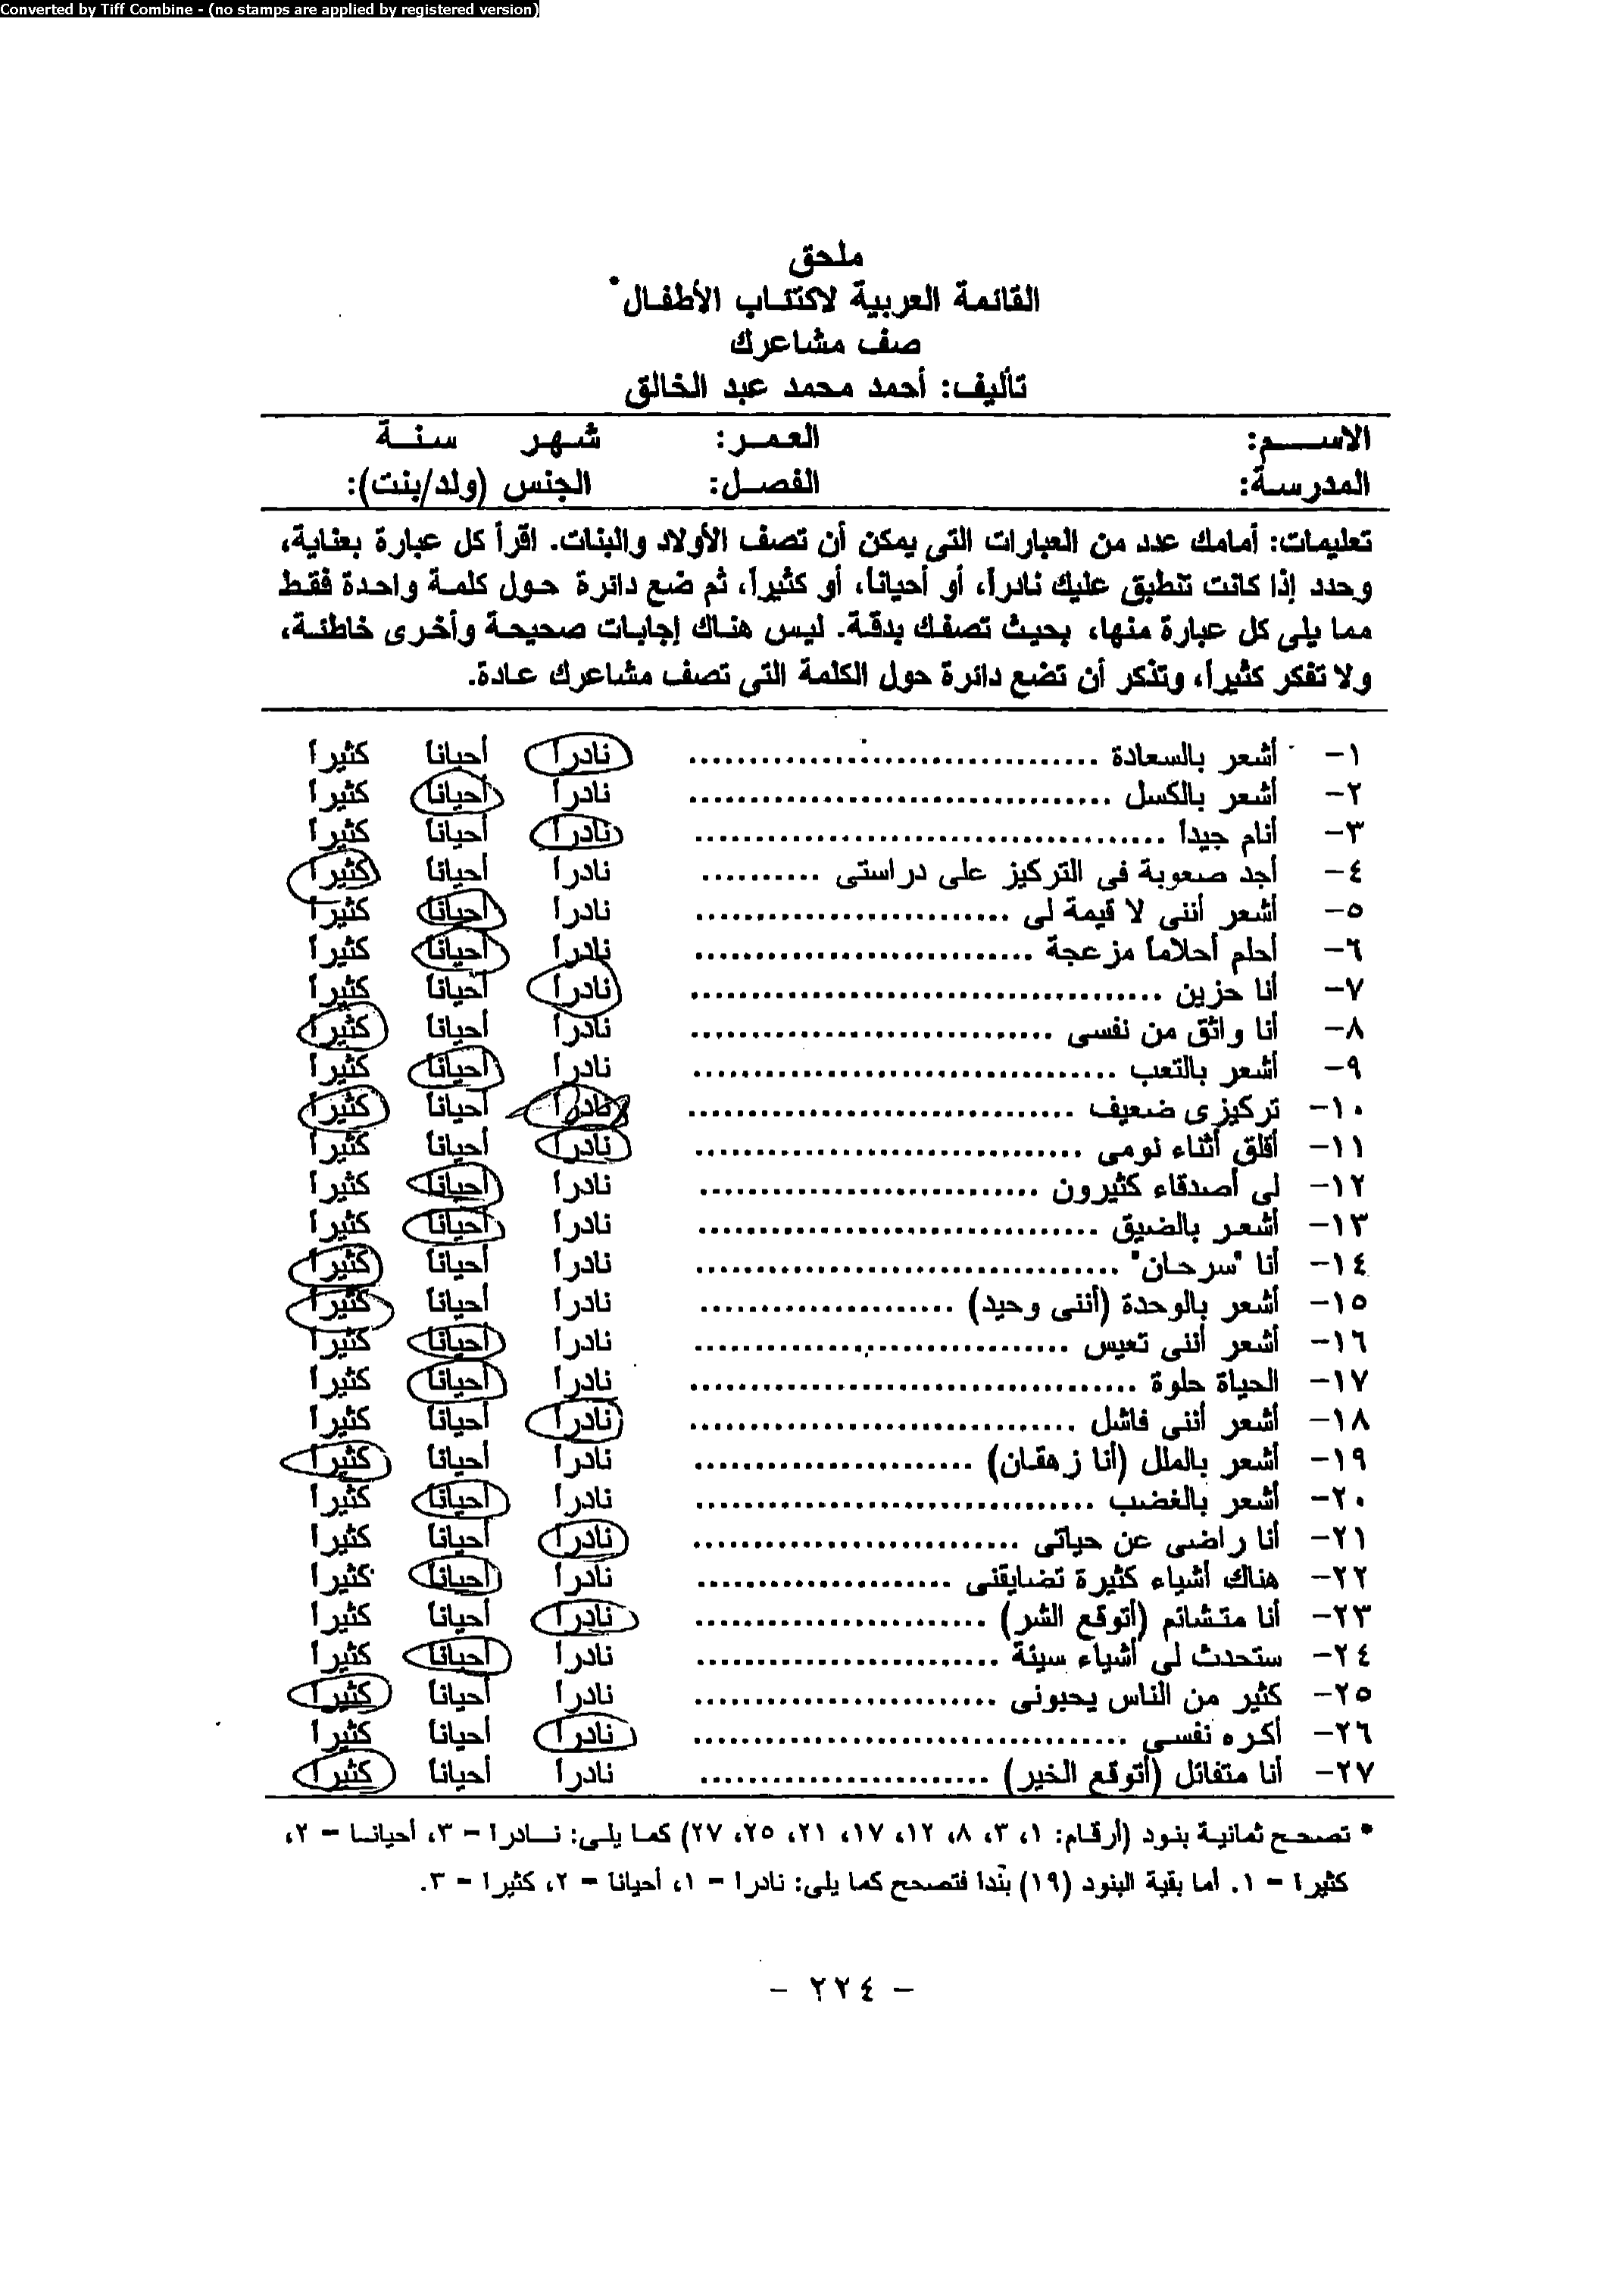 Converted by Tiff Combine - (no stamps are applied by registered version)
ملحق
القائمة العربية لاكتئاب الأطفال*
صف مشاعرك
تأليف: أحمد محمد عبد الخالق
الاسم: العمر: شهر سنة
المدرسة: الفصل: الجنس (ولد/بنت):
تعليمات: أمامك عدد من العبارات التى يمكن أن تصف الأولاد والبنات. اقرأ كل عبارة بعناية،
وحدد إذا كانت تنطبق عليك نادراً، أو أحياناً، أو كثيراً، ثم ضع دائرة حول كلمة واحدة فقط
مما يلى كل عبارة منها، بحيث تصفك بدقة. ليس هناك إجابات صحيحة وأخرى خاطئة،
ولا تفكر كثيراً، وتذكر أن تضع دائرة حول الكلمة التى تصف مشاعرك عادة.
١- أشعر بالسعادة .................................. نادراً أحيانا كثيراً
٢- أشعر بالكسل .................................. نادراً أحيانا كثيراً
٣- أنام جيداً ...................................... نادراً أحيانا كثيراً
٤- أجد صعوبة فى التركيز على دراستى .......... نادراً أحيانا كثيراً
٥- أشعر أننى لا قيمة لى .......................... نادراً أحيانا كثيراً
٦- أحلم أحلاماً مزعجة ............................ نادراً أحيانا كثيراً
٧- أنا حزين ...................................... نادراً أحيانا كثيراً
٨- أنا واثق من نفسى .............................. نادراً أحيانا كثيراً
٩- أشعر بالتعب .................................. نادراً أحيانا كثيراً
١٠- تركيزى ضعيف ................................ نادراً أحيانا كثيراً
١١- أقلق أثناء نومى .............................. نادراً أحيانا كثيراً
١٢- لى أصدقاء كثيرون ............................ نادراً أحيانا كثيراً
١٣- أشعر بالضيق ................................ نادراً أحيانا كثيراً
١٤- أنا "سرحان" .................................. نادراً أحيانا كثيراً
١٥- أشعر بالوحدة (أننى وحيد) .................... نادراً أحيانا كثيراً
١٦- أشعر أننى تعيس .............................. نادراً أحيانا كثيراً
١٧- الحياة حلوة .................................... نادراً أحيانا كثيراً
١٨- أشعر أننى فاشل .............................. نادراً أحيانا كثيراً
١٩- أشعر بالملل (أنا زهقان) ...................... نادراً أحيانا كثيراً
٢٠- أشعر بالغضب ................................ نادراً أحيانا كثيراً
٢١- أنا راضى عن حياتى .......................... نادراً أحيانا كثيراً
٢٢- هناك أشياء كثيرة تضايقنى .................... نادراً أحيانا كثيراً
٢٣- أنا متشائم (أتوقع الشر) ...................... نادراً أحيانا كثيراً
٢٤- ستحدث لى أشياء سيئة ........................ نادراً أحيانا كثيراً
٢٥- كثير من الناس يحبونى ........................ نادراً أحيانا كثيراً
٢٦- أكره نفسى .................................... نادراً أحيانا كثيراً
٢٧- أنا متفائل (أتوقع الخير) ...................... نادراً أحيانا كثيراً
* تصحح ثمانية بنود (أرقام: ١، ٣، ٨، ١٢، ١٧، ٢١، ٢٥، ٢٧) كما يلى: نادرا = ٣، أحيانا = ٢،
كثيرا = ١. أما بقية البنود (١٩) بندا فتصحح كما يلى: نادرا = ١، أحيانا = ٢، كثيرا = ٣.
- ٢٢٤ -